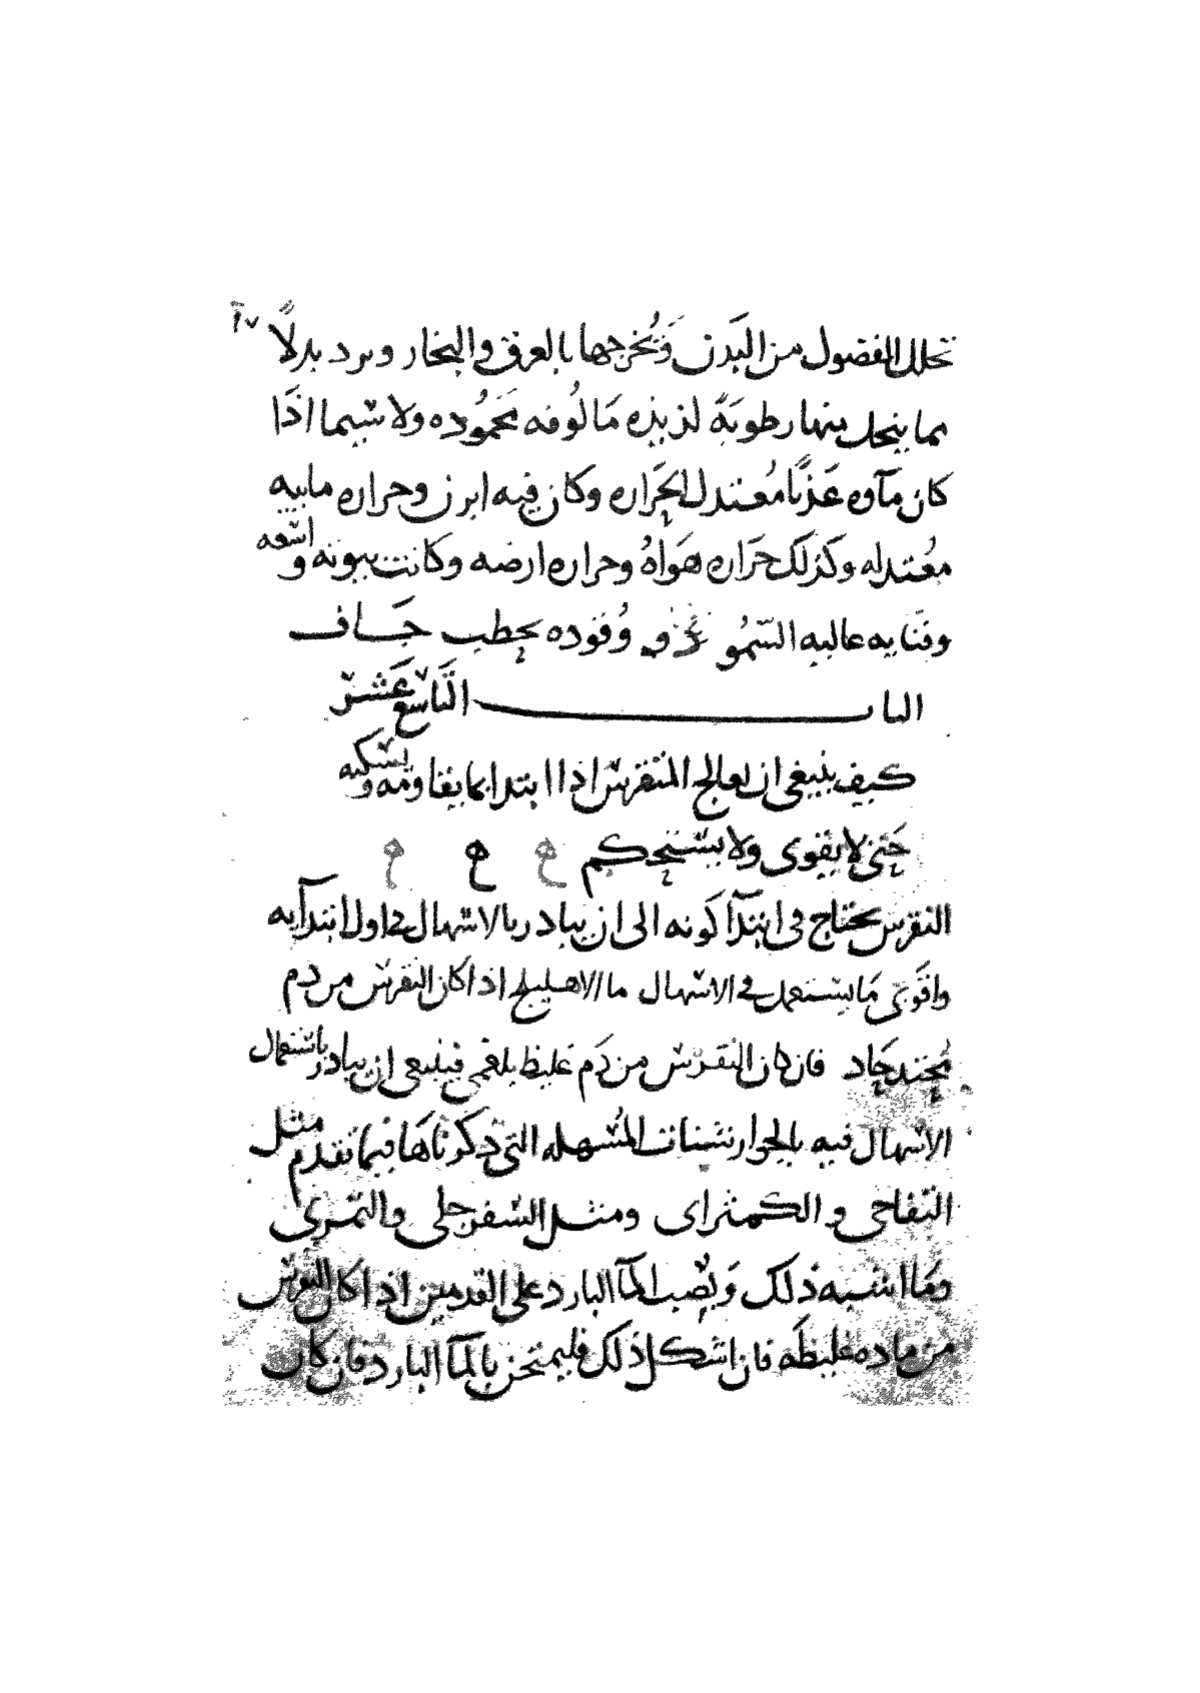 تحلل الفضول من البَدن وَتُخرجها بالعرق والبخار ويرد بدلاً
مما ينحل منها رطوبَة لذيذه مَالُوفه مَحمُوده ولا سيما اذَا
كان مآوه عَذبًا مُعتدل الحَراره وكان فيه ابزن وحراره مابيه
مُعتدله وكذلك حَراره هَواهُ وحراره ارضه وكانت بيوته واسعه
وقنايه عاليه السّمُو وُقوده بحطب جَاف
الباب التَاسع عَشر
كيف ينبغي ان يعالج النقرس اذا ابتدا بما يقاومه ويسكنه
حَتى لا يقوى ولا يستحكم
النقرس يحتاج في ابتدآ كَونه الى ان يبادر بالاسهال في اول ابتدآيه
واقوَى مَا يستعمل في الاسهال ما الاهليلج اذا كان النقرس من دم
مُحتد حَاد فان كان النقرس من دَم غليظ بلغمي فينبغي ان يبادر باستعمال
الاسهال فيه بالجوارشنات المُسهله التي ذكرناهَا فيما تقدم مثل
التفاحي و الكمثراى ومثل السفرجلي والتمري
ومَا اشبه ذلك وَيُصَب المآ البارد على القدمين اذا كان النقرس
من ماده غليظَه فان اشكل ذلك فليمتحن بالمآ البارد فان كان